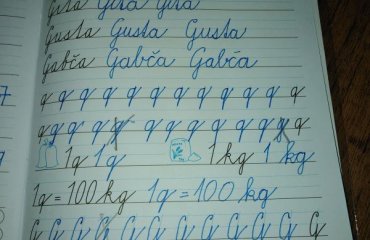 Gita Gita Gita
Gusta Gusta Gusta
Gabča Gabča Gabča
q q q q q q q q q q q q q q
q q q q q q q q q q q q q q
1q 1q 1 kg 1 kg
1q = 100 kg 1q = 100 kg
G G G G G G G G G G G